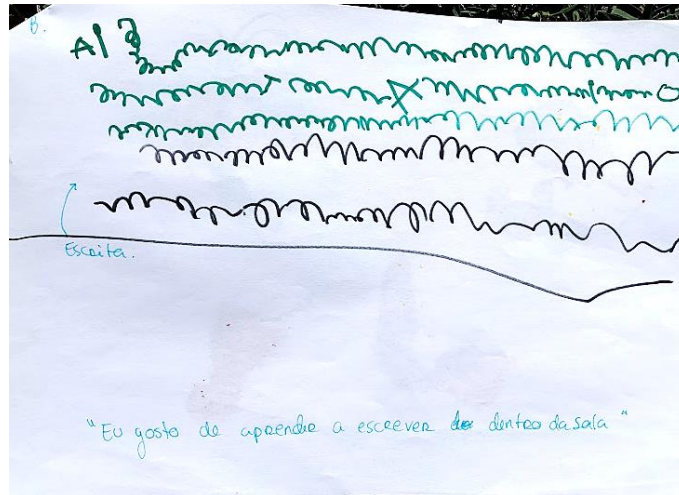 B.
A
Escrita.
"Eu gosto de aprender a escrever dentro da sala"